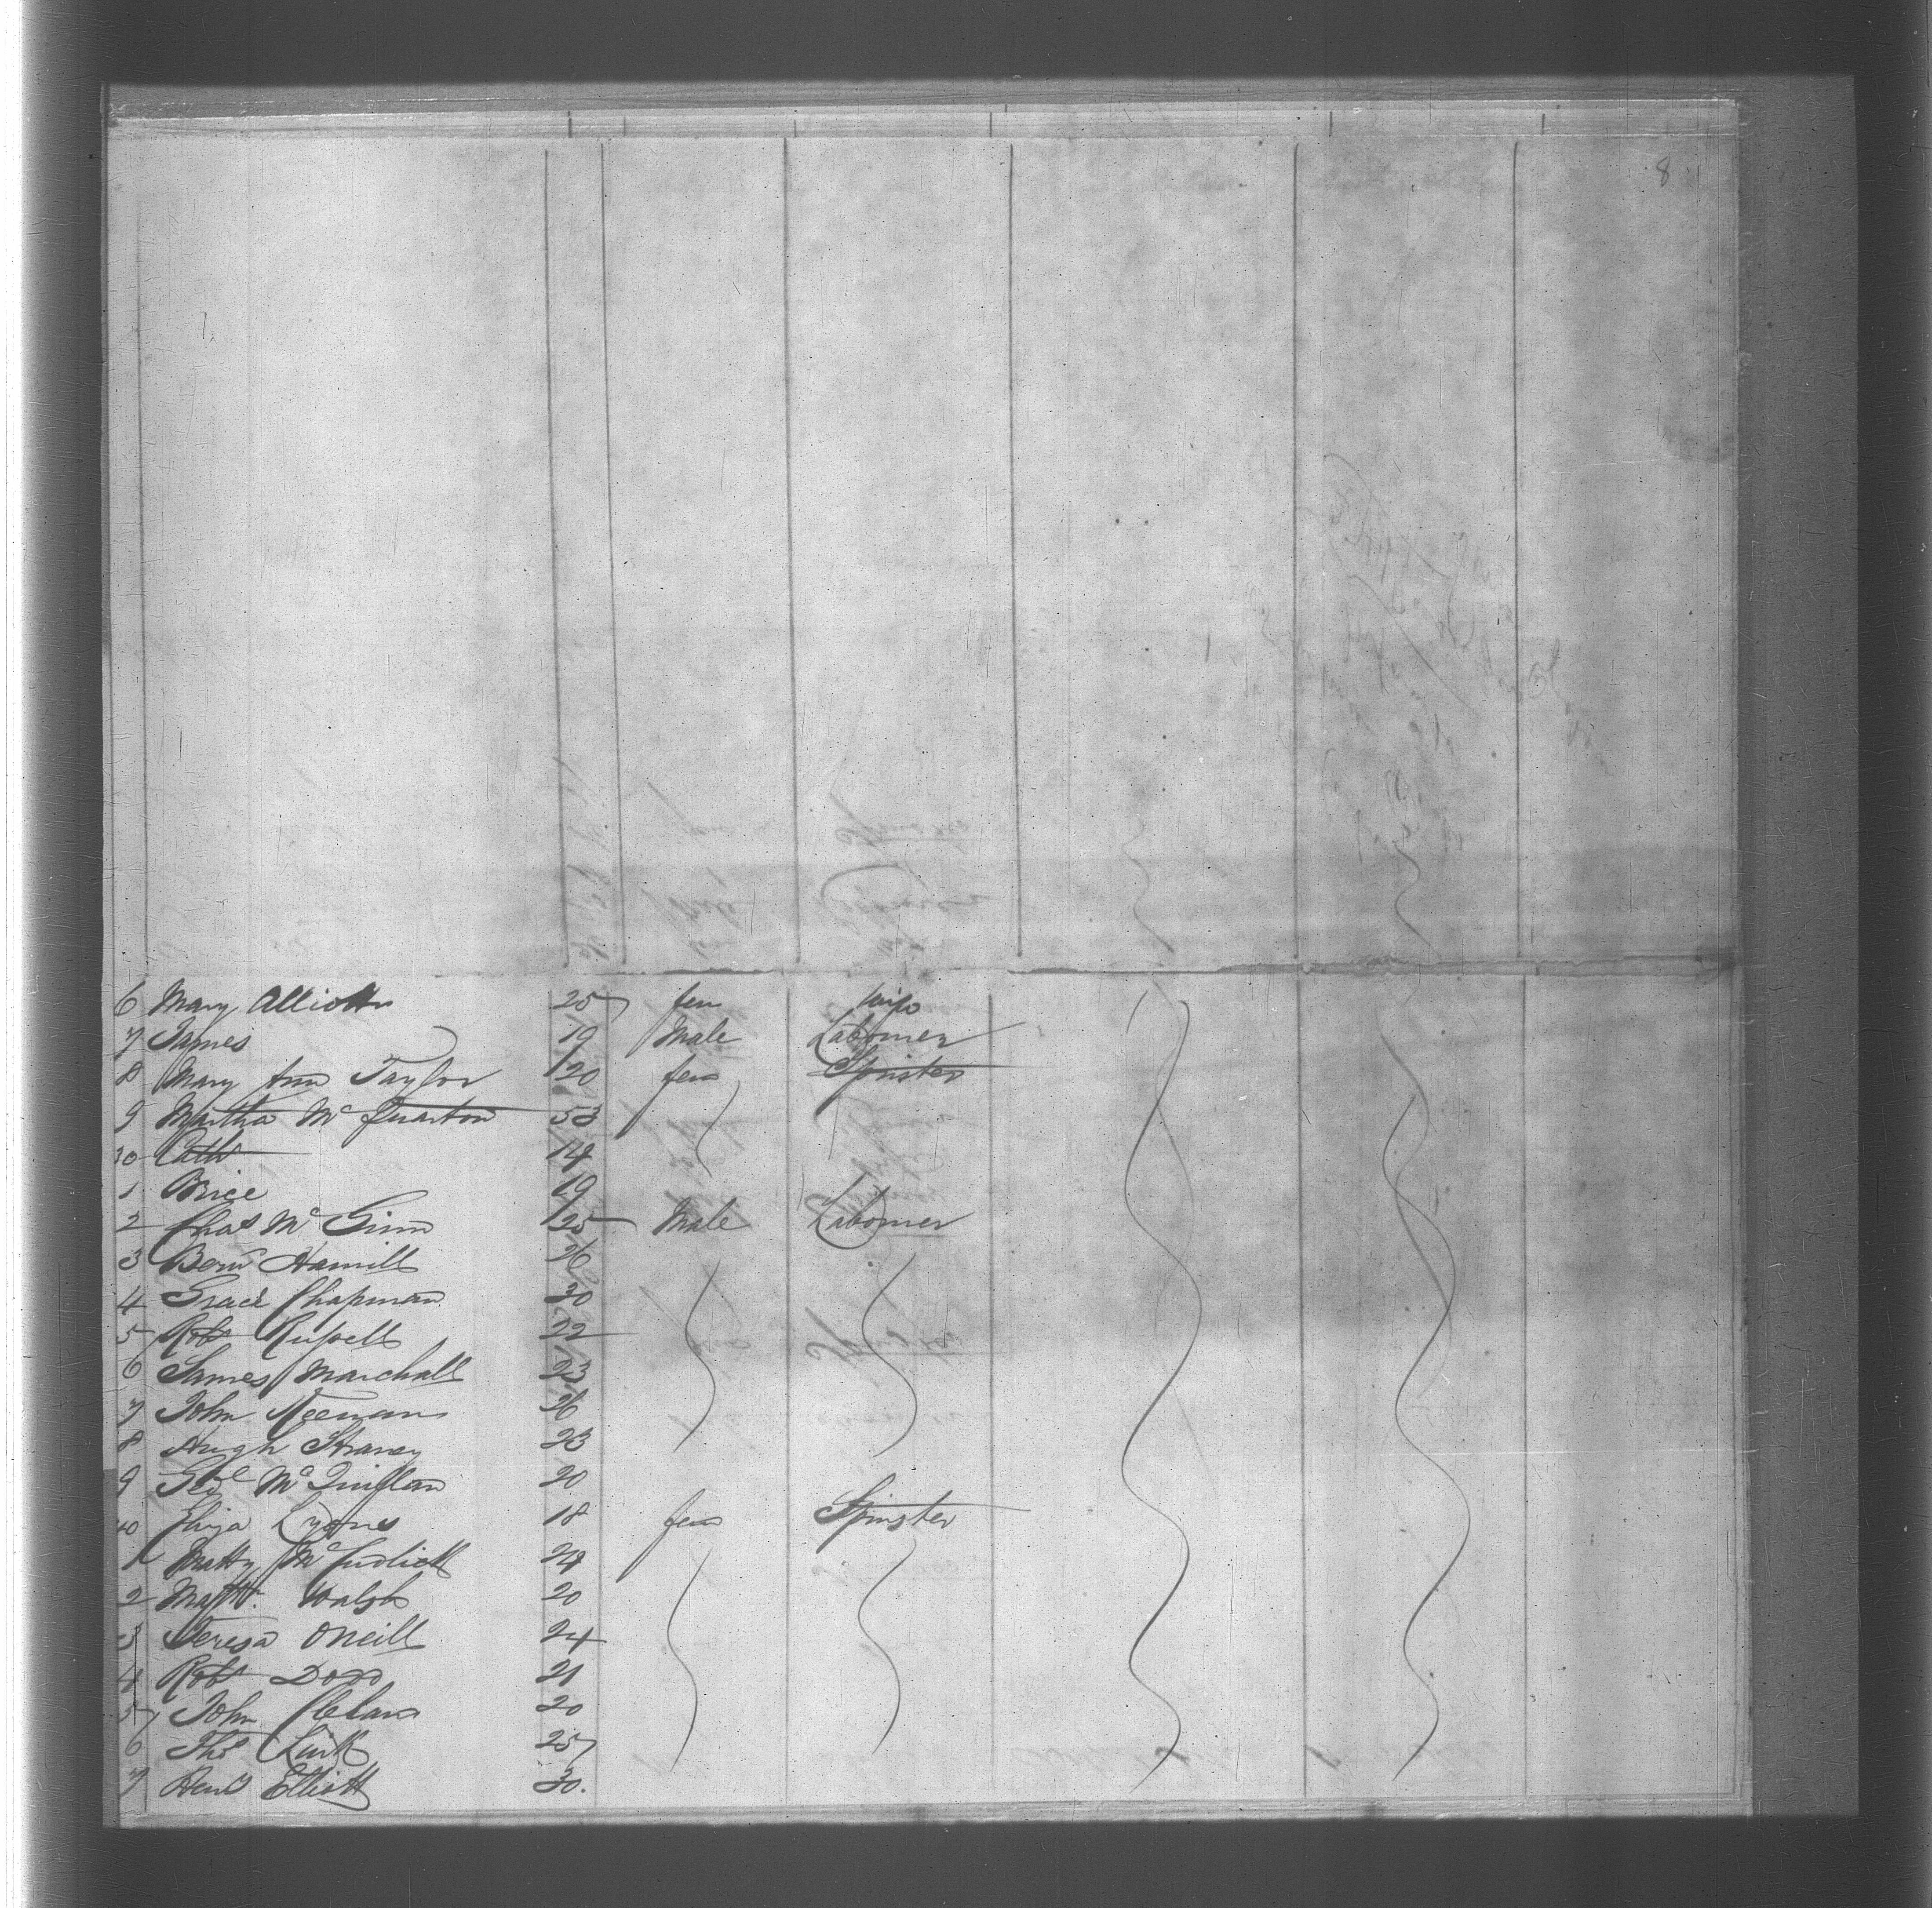 8
6 Mary Alliott 25 fem wife
7 James 19 Male Labourer
8 Mary Ann Taylor 20 fem Spinster
9 Martha Mc Quarton 53
30 Cathe 14
1 Brice 19
2 Chas Mc Ginn 25 Male Labourer
3 Bern Hamill 26
4 Grace Chapman 30
5 Robt Russell 22
6 James Marchall 23
7 John Keenan 26
8 Hugh Straney 23
9 Geo Mc Quillan 20
40 Eliza Lyons 18 fem Spinster
1 Matty Mc 24
2 Matt. Walsh 20
3 Teresa ONeill 24
4 Robt 21
5 John Cleland 20
6 Thos 25
7 Henry Elliott 30.